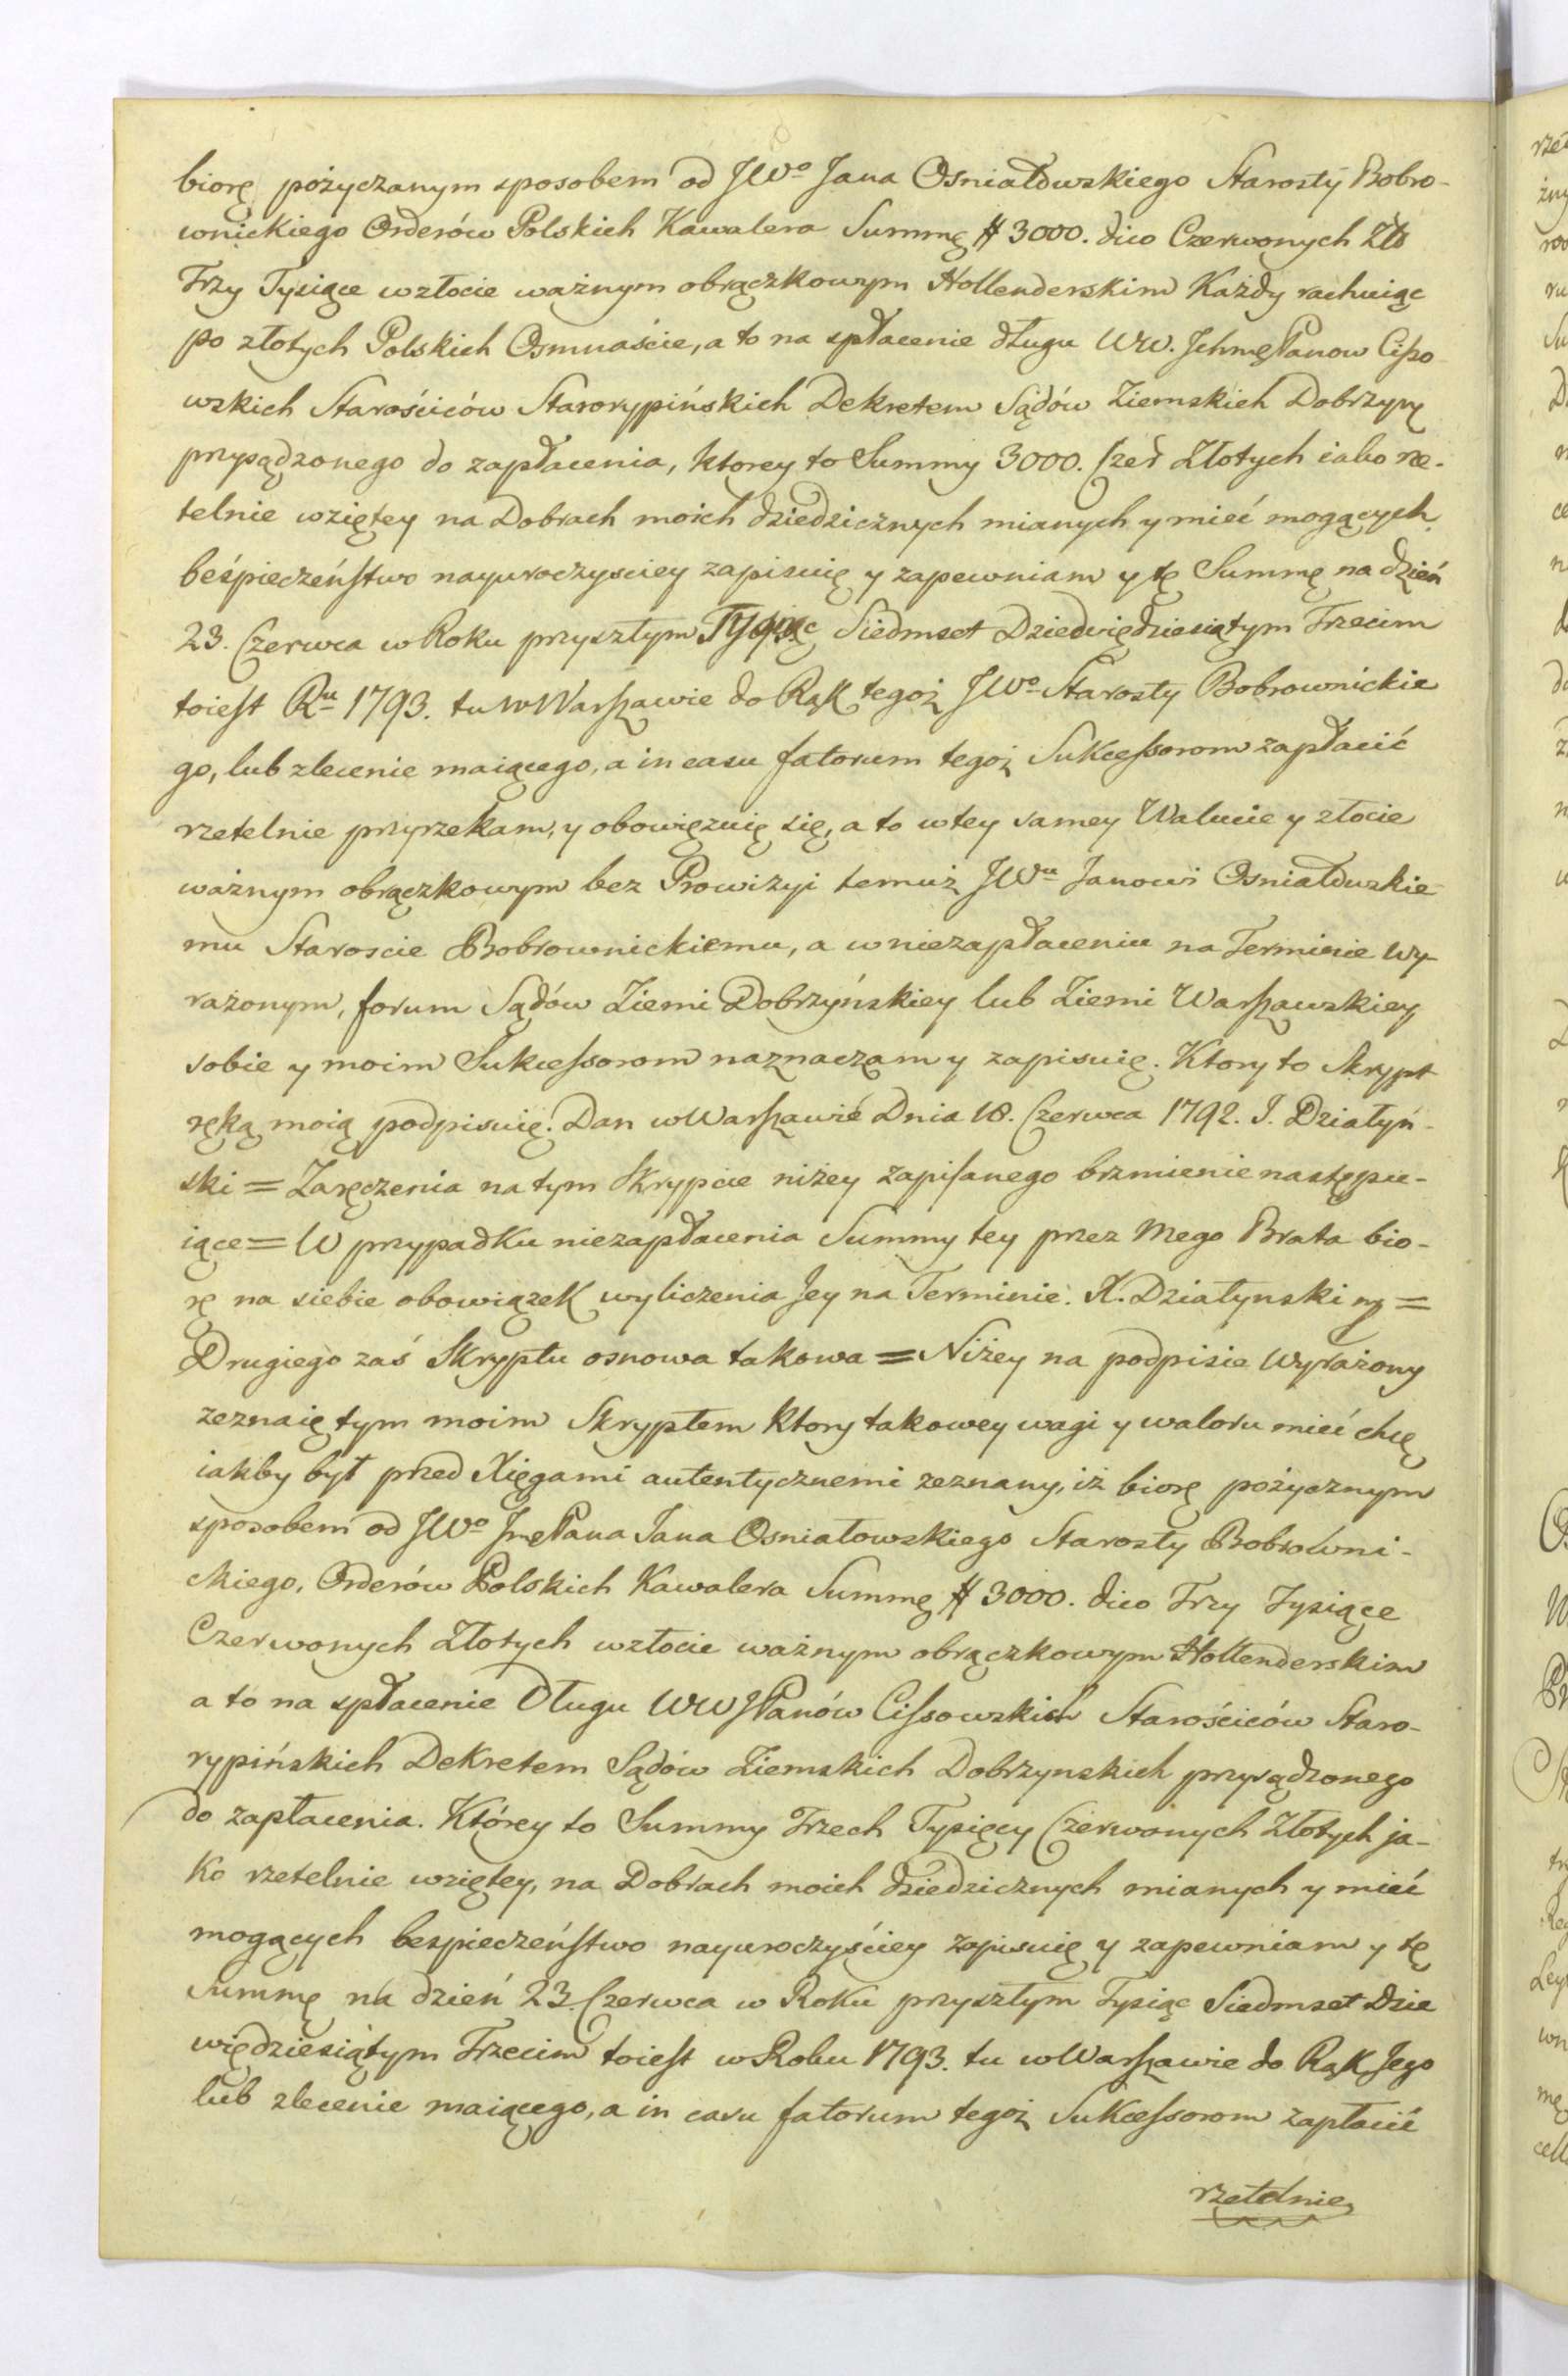 biorę pożyczanym sposobem od JWo Jana Osniałowskiego Starosty Bobro-
wnickiego Orderów Polskich Kawalera Summę # 3000. dico Czerwonych Zło
Trzy Tysiące wzłocie ważnym obrączkowym Hollenderskim Każdy rachuiąc
po złotych Polskich Osmnaście, a to na spłacenie długu WW. Ichmę Panow Ciso
wskich Starościców Starorypińskich Dekretem Sądów Ziemskich Dobrzyn
przysądzonego do zapłacenia, ktorey to Summy 3000. Czer Złotych iako rze-
telnie wziętey na Dobrach moich dziedzicznych mianych y mieć mogących
beśpieczeństwo nayuroczyściey zapisuię y zapewniam y tę Summę na dzień
23. Czerwca w Roku przyszłym Tysiąc Siedmset Dziedwiędziesiątym Trzecim
toiest Ru 1793. tu w Warszawie do Rąk tegoż JWo Starosty Bobrownickie
go, lub zlecenie maiącego, a in casu fatorum tegoż Sukcessorom zapłacić
rzetelnie przyrzekam, y obowięzuię się, a to wtey samey Walucie y złocie
ważnym obrączkowym bez Prowizyi temuż JWu Janowi Osniałowskie
mu Staroscie Bobrownickiemu, a w niezapłaceniu na Terminie wy-
rażonym, forum Sądów Ziemi Dobrzyńskiey lub Ziemi Warszawskiey
sobie y moim Sukcessorom naznaczam y zapisuię. Ktory to Skrypt
ręką moią podpisuię. Dan w Warszawie Dnia 18. Czerwca 1792. I. Działyń-
ski = Zaręczenia na tym Skrypcie niżey zapisanego brzmienie następu-
iące = W przypadku niezapłacenia Summy tey przez Mego Brata bio-
rę na siebie obowiązek wyliczenia Jey na Terminie. X. Działynski mp =
Drugiego zaś Skryptu osnowa takowa = Niżey na podpisie wyrażony
zeznaię tym moim Skryptem ktory takowey wagi y waloru mieć chcę
iakby był przed Xięgami autentycznemi zeznany, iż biorę pożycznym
sposobem od JWo Jmę Pana Jana Osniałowskiego Starosty Bobrowni-
ckiego, Orderów Polskich Kawalera Summę # 3000. dico Trzy Tysiące
Czerwonych Złotych wzłocie ważnym obrączkowym Hollenderskim
a to na spłacenie Długu WWJPanów Cissowskich Starościców Staro-
rypińskich Dekretem Sądów Ziemskich Dobrzynskich przysądzonego
do zapłacenia. Którey to Summy Trzech Tysięcy Czerwonych Złotych ja-
ko rzetelnie wziętey, na Dobrach moich dziedzicznych mianych y mieć
mogących bespieczeństwo nayuroczyściey zapisuię y zapewniam y tę
summę na dzień 23. Czerwca w Roku przyszłym Tysiąc Siedmset Dzie
więdziesiątym Trzecim toiest w Roku 1793. tu w Warszawie do Rąk Jego
lub zlecenie maiącego, a in casu fatorum tegoż Sukcessorom zapłacić
rzetelnie